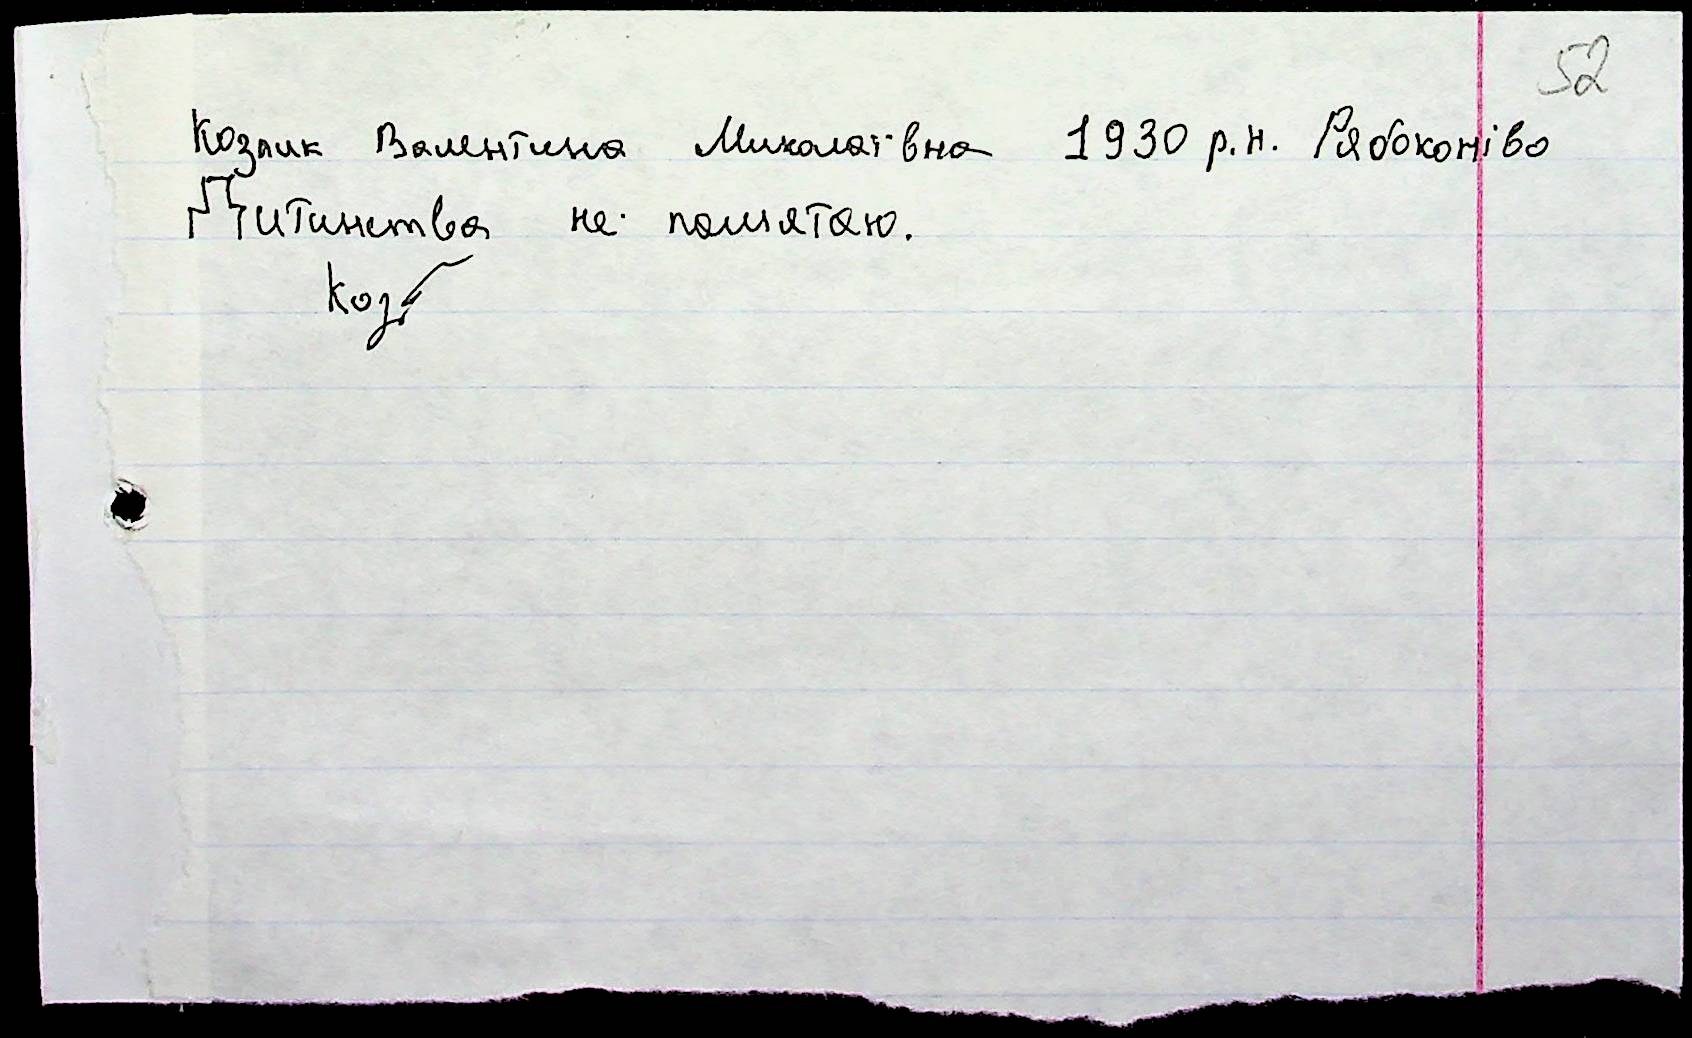 52
Козлик Валентина Миколаївна 1930 р.н. Рябоконіво
Дитинства не памятаю.
Коз